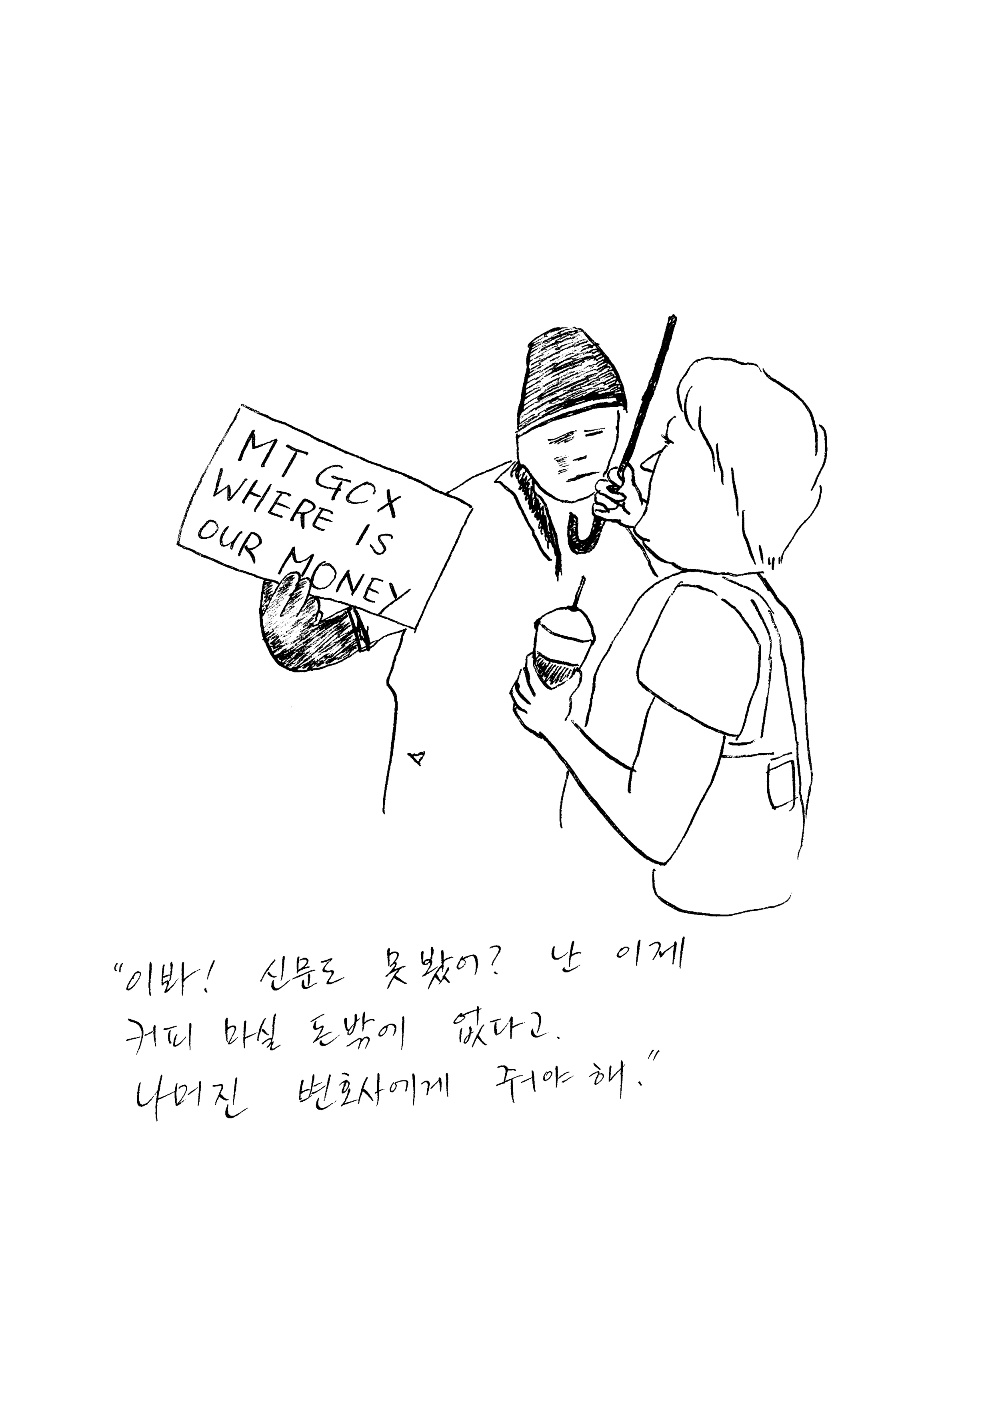 MT GOX
WHERE IS
OUR MONEY
"이봐! 신문도 못봤어? 난 이제
커피 마실 돈밖에 없다고.
나머진 변호사에게 줘야 해."